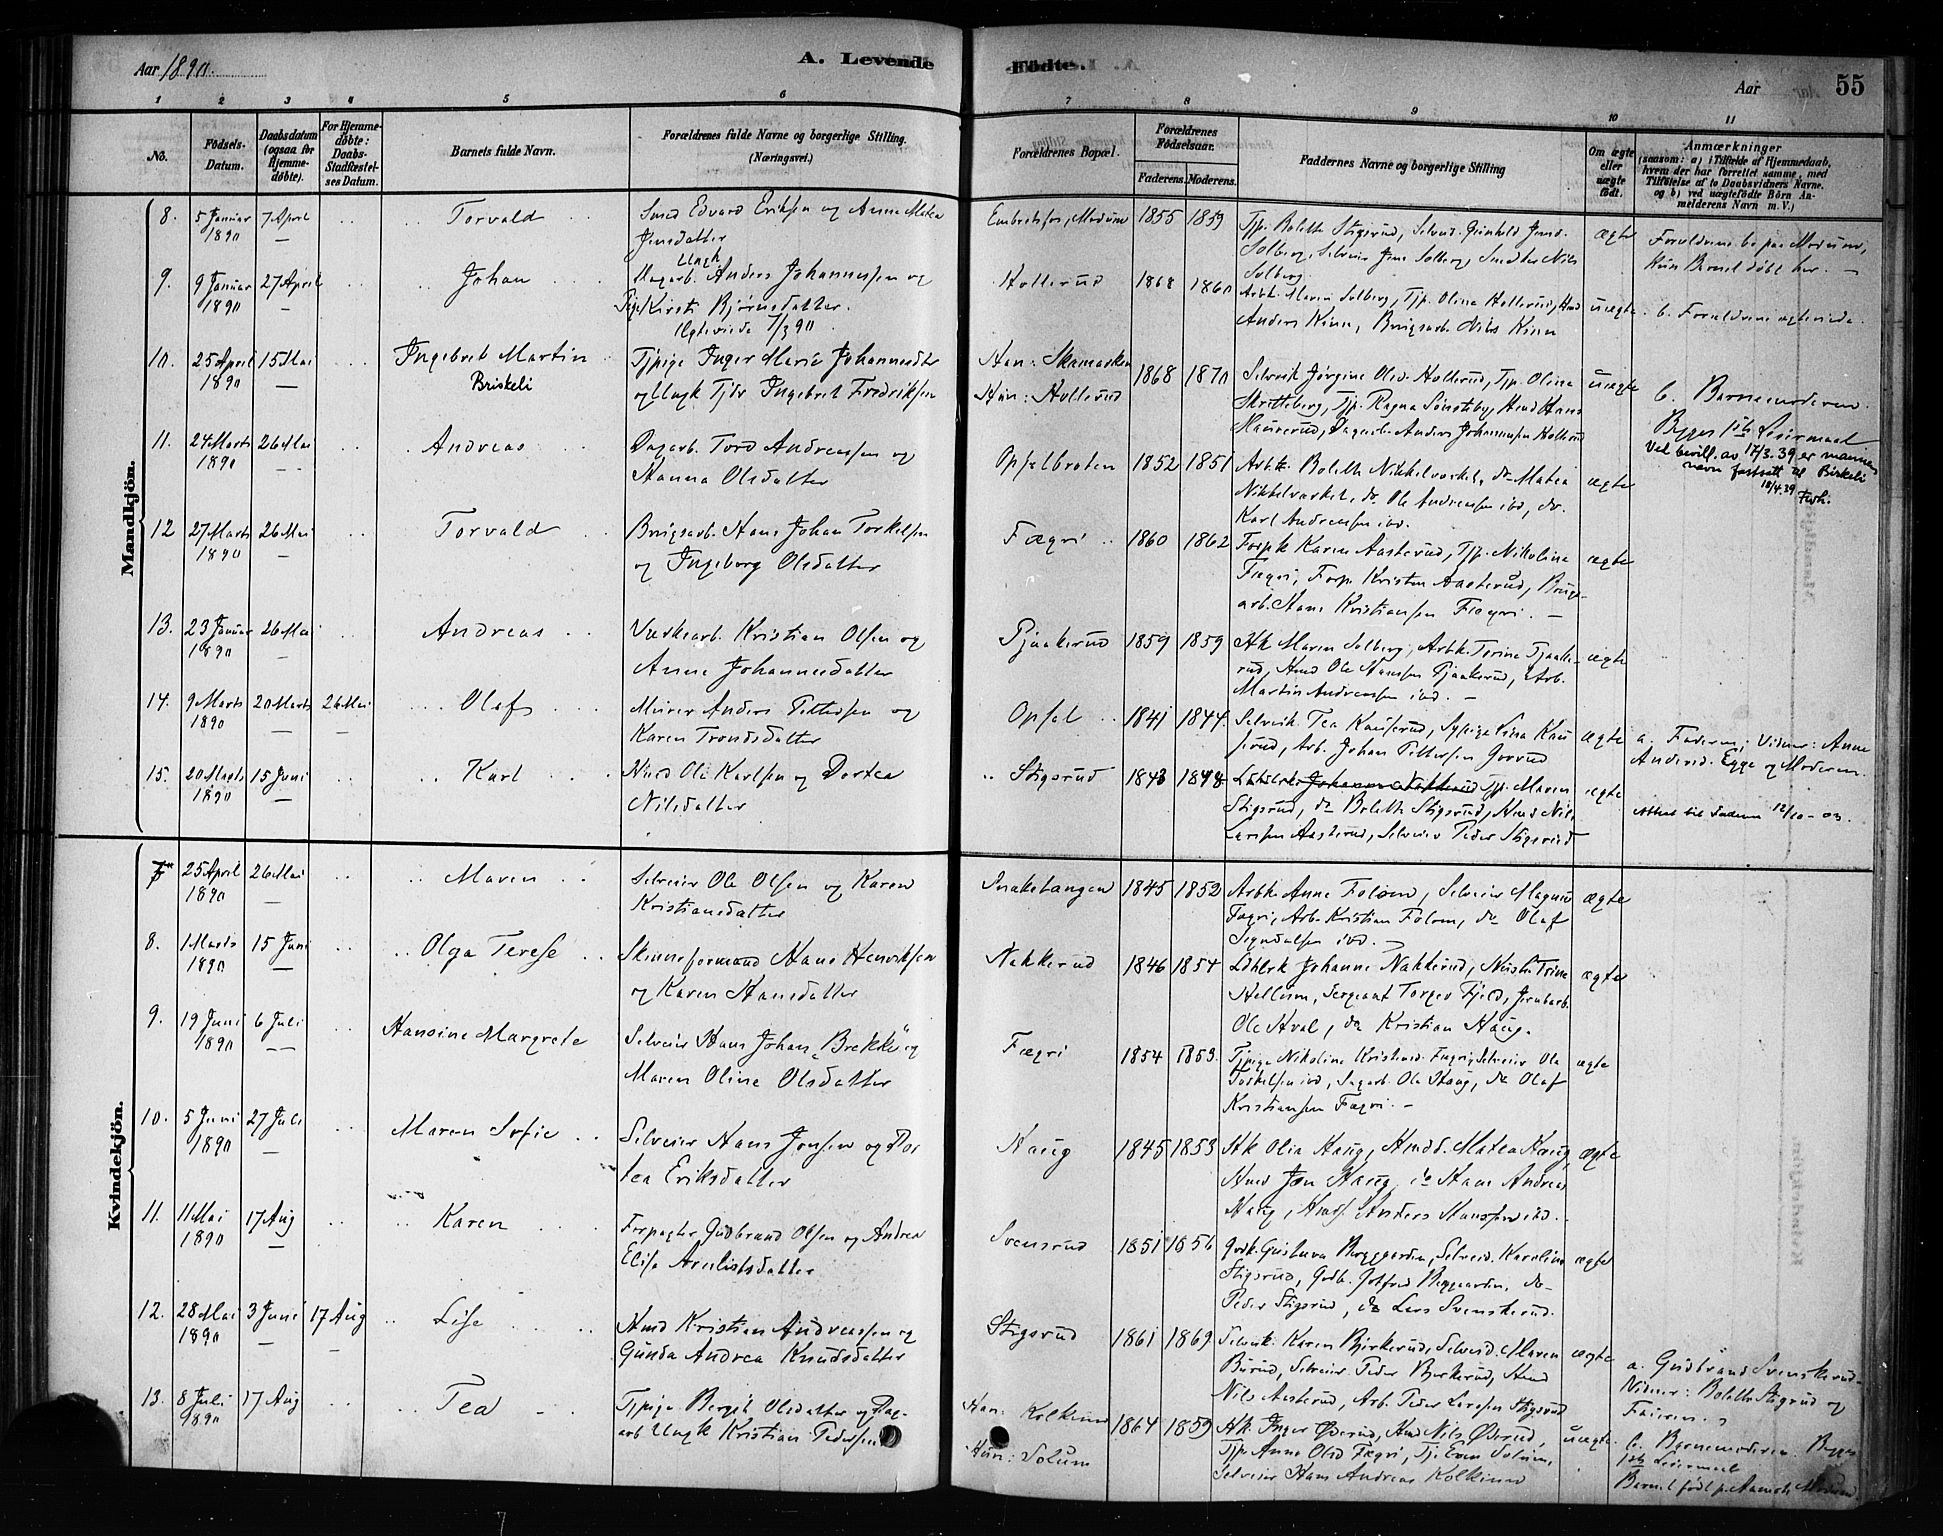 Aar 1890.
A. Levende
Fødte.
Aar
55
1 2 3 4 5 6 7 8 9 10 11
No.
Födsels-Datum.
Daabsdatum (ogsaa for Hjemme-döbte).
For Hjemme-döbte: Daabs-Stadfæstel-ses Datum.
Barnets fulde Navn.
Forældrenes fulde Navne og borgerlige Stilling. (Næringsvei.)
Forældrenes Bopæl.
Forældrenes Födselsaar.
Faderens. Moderens.
Faddernes Navne og borgerlige Stilling
Om ægte eller uægte födt.
Anmærkninger
(saasom: a) i Tilfælde af Hjemmedaab, hvem der har forrettet samme, med Tilföielse af to Daabsvidners Navne, og b) ved uægtefödte Börn An-melderens Navn m. V.)
Mandkjön.
8. 5 Januar 1890 7 April Torvald
Smed Edvard Eriksen og Anne Matea
Jensdatter
Embretsfos, Modum 1855 1859
Tjp. Bolette Stigsrud, Selveid. Gunhild Jensd.
Solberg, Selveier Jens Solberg, Smedkar Nils
Solberg
ægte
Forældrene bo paa Modum,
kun Barnet döbt her. —
9. 9 Januar 1890 27 April Johan
Ungk
Dagarb. Anders Johannessen og
Pige Kirsti Bjørnsdatter.
Ægteviede 7/3 90.
Hollerud 1868 1860
Arbk. Maren Solberg, Tjp. Olina Hollerud, Hmd
Anders Kinn, Brugsarb. Nils Kinn
uægte
b. Forældrene ægteviede.
10. 25 April 1890 15 Mai Ingebret Martin
Briskeli
Tjpige Inger Marie Johannesdtr
og Ungk Tjdr Ingebret Fredriksen
Han: Skamarken
Hun: Hollerud
1868 1870
Selveik. Jørgine Olsd. Hollerud, Tjp. Olina
Skretteberg, Tjp. Ragna Sønsteby, Hmd Hans
Maurerud, Dagarb. Anders Johannessen Hollerud
uægte
b. Barnemoderen.
Begges 1ste Leiermaal
Ved bevill. av 17/3.39 er mannens
navn fastsatt til Birkeli
18/4.39
11. 24 Marts 1890 26 Mai Andreas
Dagarb. Tord Andreassen og
Hanna Olsdatter
Opsalbraten 1852 1851
Arbk. Bolette Nikkelverket, do Matea
Nikkelverket, do Ole Andreassen ibd, do
Karl Andreassen ibd.
ægte
12 27 Marts 1890 26 Mai Torvald
Brugsarb. Hans Johan Torkelsen
og Ingeborg Olsdatter
Fægri 1860 1862
Forpk Karen Aasterud, Tjp. Nikoline
Fægri, Forp. Kristen Aasterud, Brugs-
arb. Hans Kristiansen Fægri. —
ægte
13. 23 Januar 1890 26 Mai Andreas
Værksarb. Kristian Olsen og
Anne Johannesdatter
Tjaakerud 1859 1859
Hk Maren Solberg, Arbk. Terine Tjaake-
rud, Hmd Ole Hansen Tjaakerud, Arb.
Martin Andreassen ibd. —
ægte
14. 9 Marts 1890 20 Marts 26 Mai Olaf
Murer Anders Pettersen og
Karen Trondsdatter
Opsal 1841 1844.
Selveik. Tea Kauserud, Sypige Lina Kau
serud, Arb. Johan Pettersen Gorud
ægte
a. Faderen; Vidner: Anne
Andersd. Egge og Moderen.
15. 20 Marts 1890 15 Juni Karl
Hmd Ole Karlsen og Dortea
Nilsdatter
Stigsrud 1843 1848
Ldhlrk Johanne Nakkerud Tjp. Maren
Stigsrud, do Bolette Stigsrud, Hmd Nils
Larssen Aasterud, Selveier Peder Stigsrud
ægte
Attest til Faderen 12/10-03.
Kvindekjön.
7 25 April 1890 26 Mai Maren
Selveier Ole Olsen og Karen
Kristiansdatter
Snaketangen 1845 1852
Arbk. Anne Folom, Selveier Magnus
Fægri, Arb. Kristian Folom, do Olaf
Signdalsen ibd. —
ægte
8. 1 Marts 1890 15 Juni Olga Terese
Skinneformand Hans Henriksen
og Karen Hansdatter
Nakkerud 1846 1854
Ldhlrk Johanne Nakkerud, Trine
Hellesen, Sergeant Torger Fjeld, Jernbarb.
Ole Hval, do Kristian Haug.
ægte
9. 19 Juni 1890 6 Juli Hansine Margrete
Selveier Hans Johans. Brekke og
Maren Oline Olsdatter
Fægri 1854 1853.
Tjpige Nikoline Kristiansd. Fægri, Selveier Ole
Torkelsen ibd, Sagarb. Ole Haug, do Olaf
Kristiansen Fægri. —
ægte
10. 5 Juni 1890 27 Juli Maren Sofie
Selveier Hans Jonsen og Dor
tea Eriksdatter
Haug 1845 1853
Hk Olia Haug, Hmdd. Matea Haug,
Hmd Jon Haug, do Hans Andreas
Haug, Hmds. Anders Hanssen ibd. —
ægte
11. 11 Mai 1890 17 Aug Karen
Forpagter Gudbrand Olsen og Andrea
Elise Arnlistsdatter
Svensrud 1851 1856
Gdbk. Gustava Bryggarden, Selveid. Karoline
Stigsrud, Gdbr. Gotfred Bryggarden, do
Peder Stigsrud, do Lars Svenskerud.
ægte
12. 28 Mai 1890 3 Juni 17 Aug Lise
Hmd Kristian Andreassen og
Gunda Andrea Knudsdatter
Stigsrud 1861 1869
Selveik. Karen Bjerkerud, Selveid. Maren
Burud, Selveier Peder Bjerkerud, Hmd
Nils Aasterud, Arb. Peder Larssen Stigsrud
ægte
a. Gudbrand Svenskerud.
Vidner: Bolette Stigsrud og
Faderen.
13. 8 Juli 1890 17 Aug Tea
Tjpige Bergit Olsdatter og Dag-
arb Ungk Kristian Pedersen
Han: Kolkinn
Hun: Solum
1864 1859
Hk. Inger Øverud, Hmd Nils Øverud,
Tjp. Anna Olsd Fægri, Tj. Even Solum,
Selveier Hans Andreas Kolkinn
uægte
b. Barnemoderen. Begges
1ste Leiermaal
Barnet født p. Aamot Modum